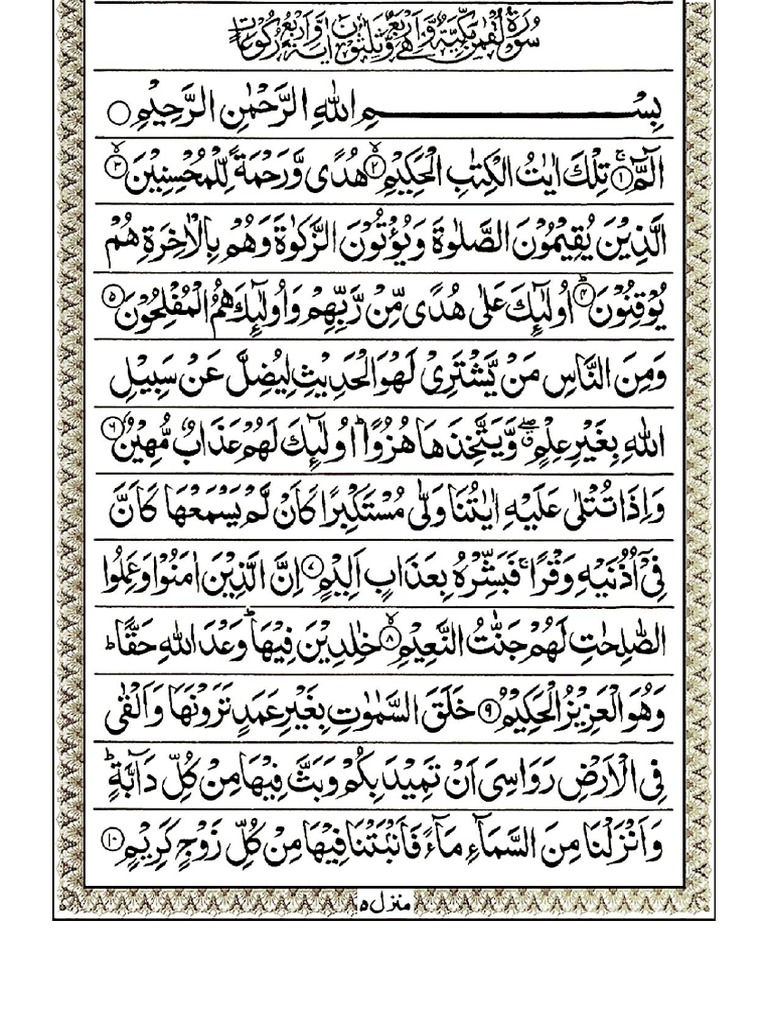 سُوْرَةُ لُقْمٰنَ مَكِّيَّةٌ وَّهِيَ اَرْبَعٌ وَّثَلٰثُوْنَ اٰيَةً وَّاَرْبَعُ رُكُوْعَاتٍ
بِسْمِ اللّٰهِ الرَّحْمٰنِ الرَّحِيْمِ ○
الٓمّٓ ۚ﴿۱﴾ تِلْكَ اٰيٰتُ الْكِتٰبِ الْحَكِيْمِ ۙ﴿۲﴾ هُدًى وَّرَحْمَةً لِّلْمُحْسِنِيْنَ ۙ﴿۳﴾
الَّذِيْنَ يُقِيْمُوْنَ الصَّلٰوةَ وَيُؤْتُوْنَ الزَّكٰوةَ وَهُمْ بِالْاٰخِرَةِ هُمْ
يُوْقِنُوْنَ ؕ﴿۴﴾ اُولٰٓئِكَ عَلٰى هُدًى مِّنْ رَّبِّهِمْ وَاُولٰٓئِكَ هُمُ الْمُفْلِحُوْنَ ﴿۵﴾
وَمِنَ النَّاسِ مَنْ يَّشْتَرِىْ لَهْوَ الْحَدِيْثِ لِيُضِلَّ عَنْ سَبِيْلِ
اللّٰهِ بِغَيْرِ عِلْمٍ ۖۗ وَّيَتَّخِذَهَا هُزُوًا ؕ اُولٰٓئِكَ لَهُمْ عَذَابٌ مُّهِيْنٌ ﴿۶﴾
وَاِذَا تُتْلٰى عَلَيْهِ اٰيٰتُنَا وَلّٰى مُسْتَكْبِرًا كَاَنْ لَّمْ يَسْمَعْهَا كَاَنَّ
فِىْٓ اُذُنَيْهِ وَقْرًا ۚ فَبَشِّرْهُ بِعَذَابٍ اَلِيْمٍ ﴿۷﴾ اِنَّ الَّذِيْنَ اٰمَنُوْا وَعَمِلُوا
الصّٰلِحٰتِ لَهُمْ جَنّٰتُ النَّعِيْمِ ۙ﴿۸﴾ خٰلِدِيْنَ فِيْهَا ؕ وَعْدَ اللّٰهِ حَقًّا ؕ
وَهُوَ الْعَزِيْزُ الْحَكِيْمُ ﴿۹﴾ خَلَقَ السَّمٰوٰتِ بِغَيْرِ عَمَدٍ تَرَوْنَهَا وَاَلْقٰى
فِى الْاَرْضِ رَوَاسِىَ اَنْ تَمِيْدَ بِكُمْ وَبَثَّ فِيْهَا مِنْ كُلِّ دَآبَّةٍ ؕ
وَاَنْزَلْنَا مِنَ السَّمَآءِ مَآءً فَاَنْۢبَتْنَا فِيْهَا مِنْ كُلِّ زَوْجٍ كَرِيْمٍ ﴿۱۰﴾
منزل ۵